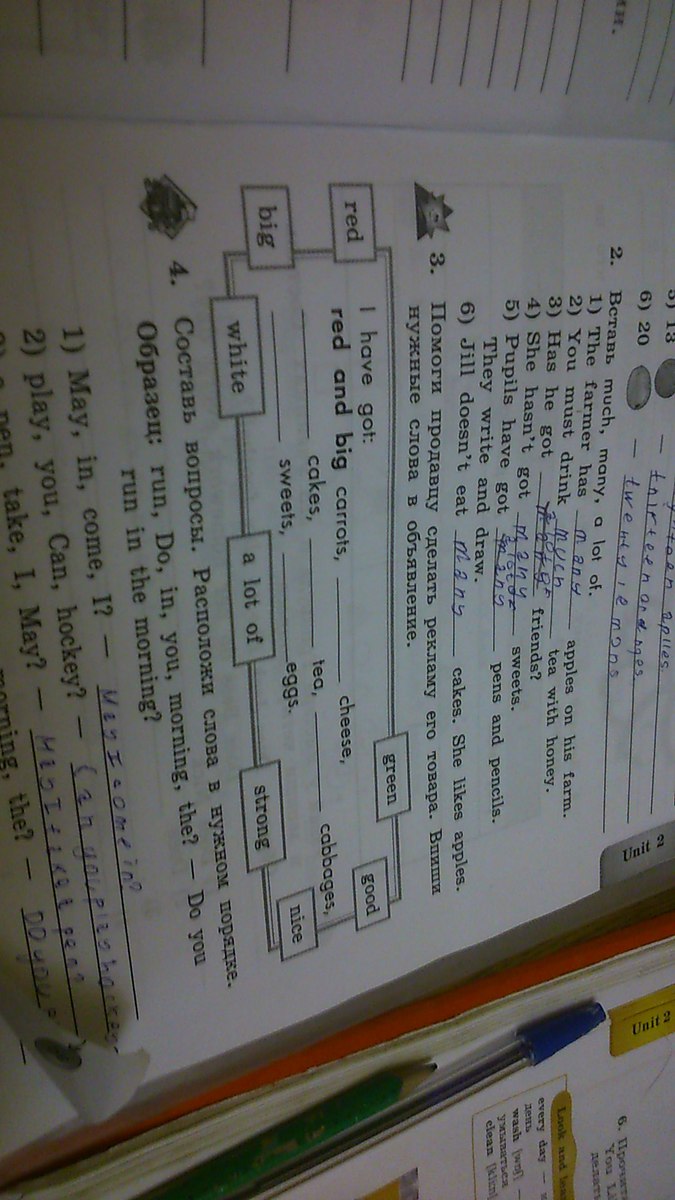 5) 13 — thirteen
6) 20 —
2. Вставь much, many, a lot of.
1) The farmer has many apples on his farm.
2) You must drink much tea with honey.
3) Has he got friends?
4) She hasn't got many sweets.
5) Pupils have got many pens and pencils.
They write and draw.
6) Jill doesn't eat many cakes. She likes apples.
3. Помоги продавцу сделать рекламу его товара. Впиши
нужные слова в объявление.
green
red
good
I have got:
red and big carrots, ________ cheese,
________ cakes, ________ tea, ________ cabbages,
________ sweets, ________ eggs.
big
nice
white
a lot of
strong
4. Составь вопросы. Расположи слова в нужном порядке.
Образец: run, Do, in, you, morning, the? — Do you
run in the morning?
1) May, in, come, I? — May I come in?
2) play, you, Can, hockey? — Can you play hockey?
pen, take, I, May? — May I take a pen?
morning, the? — Do you
Unit 2
Unit 2
6.
You
Look and
every day —
день
wash
умываться
clean